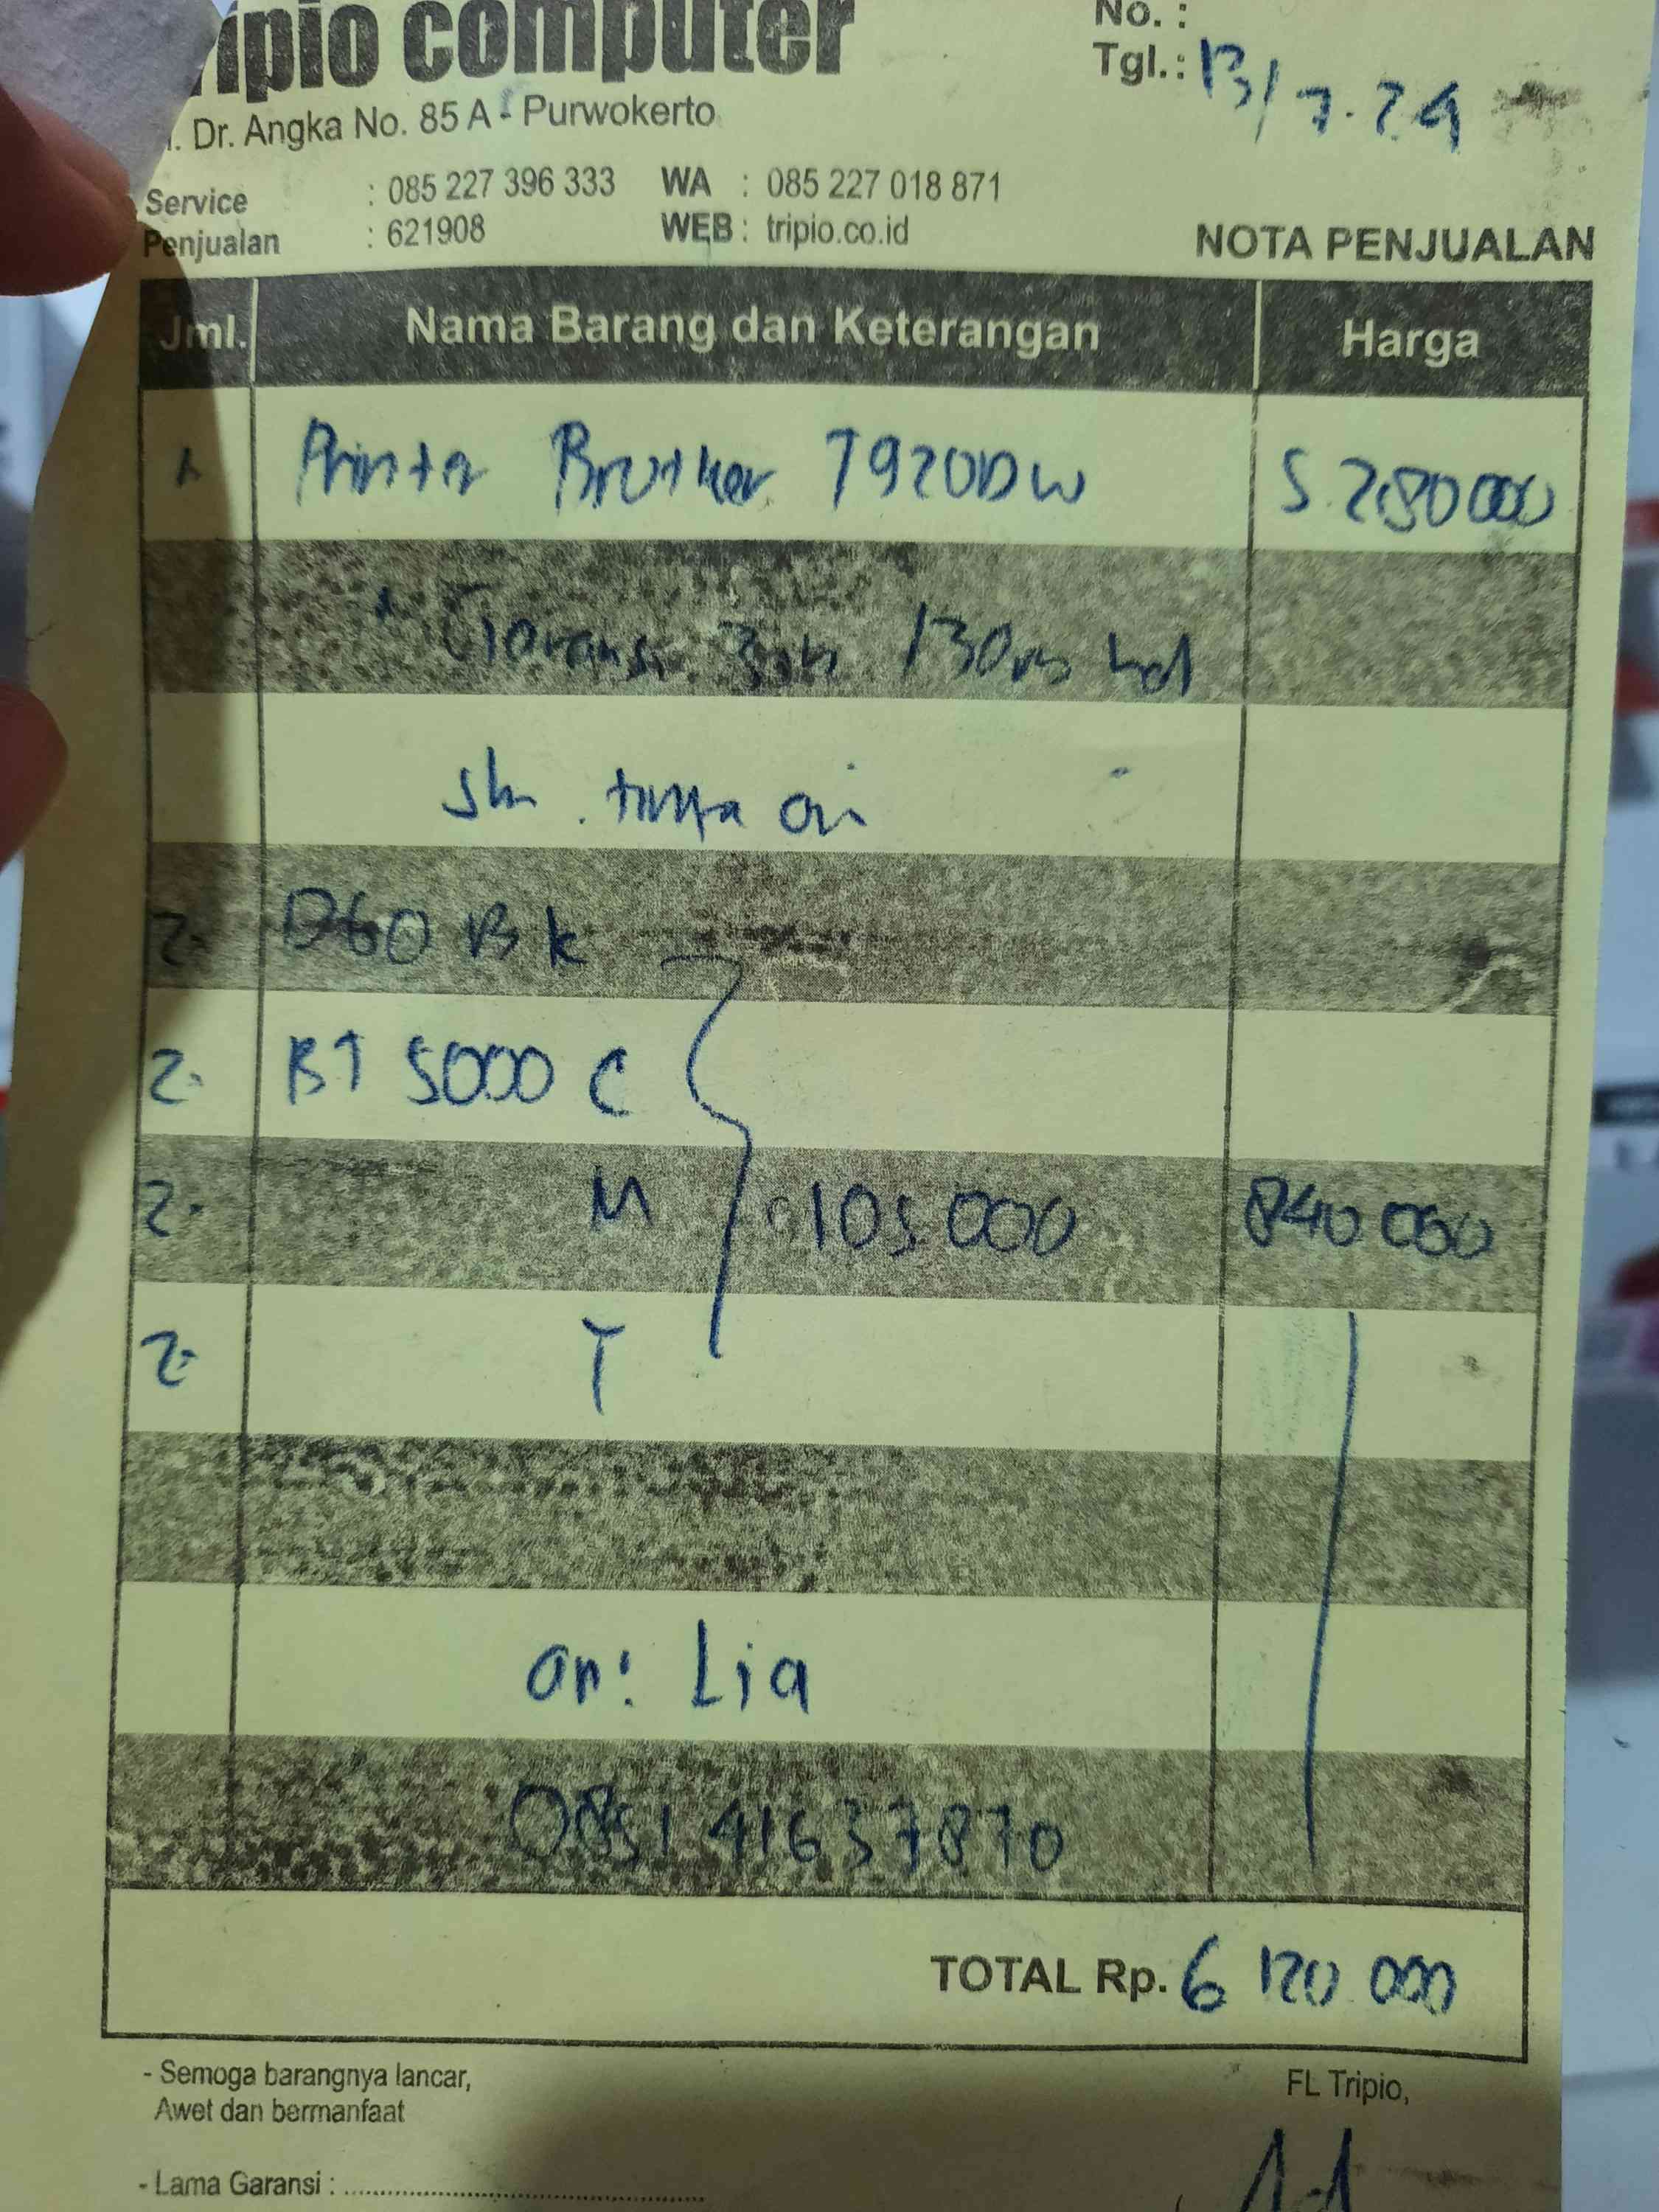 ripio computer
No. :
Tgl.: 13/7.24
. Dr. Angka No. 85 A - Purwokerto
Service : 085 227 396 333 WA : 085 227 018 871
Penjualan : 621908 WEB : tripio.co.id
NOTA PENJUALAN
Jml. Nama Barang dan Keterangan Harga
1. Printer Brother T920DW 5.280000
Garansi 3th
2. D60 BK
2. BT 5000 C
2. M 105.000 840 000
2. Y
an: Lia
0851 41637870
TOTAL Rp. 6 120 000
- Semoga barangnya lancar,
Awet dan bermanfaat
FL Tripio,
- Lama Garansi : ........................